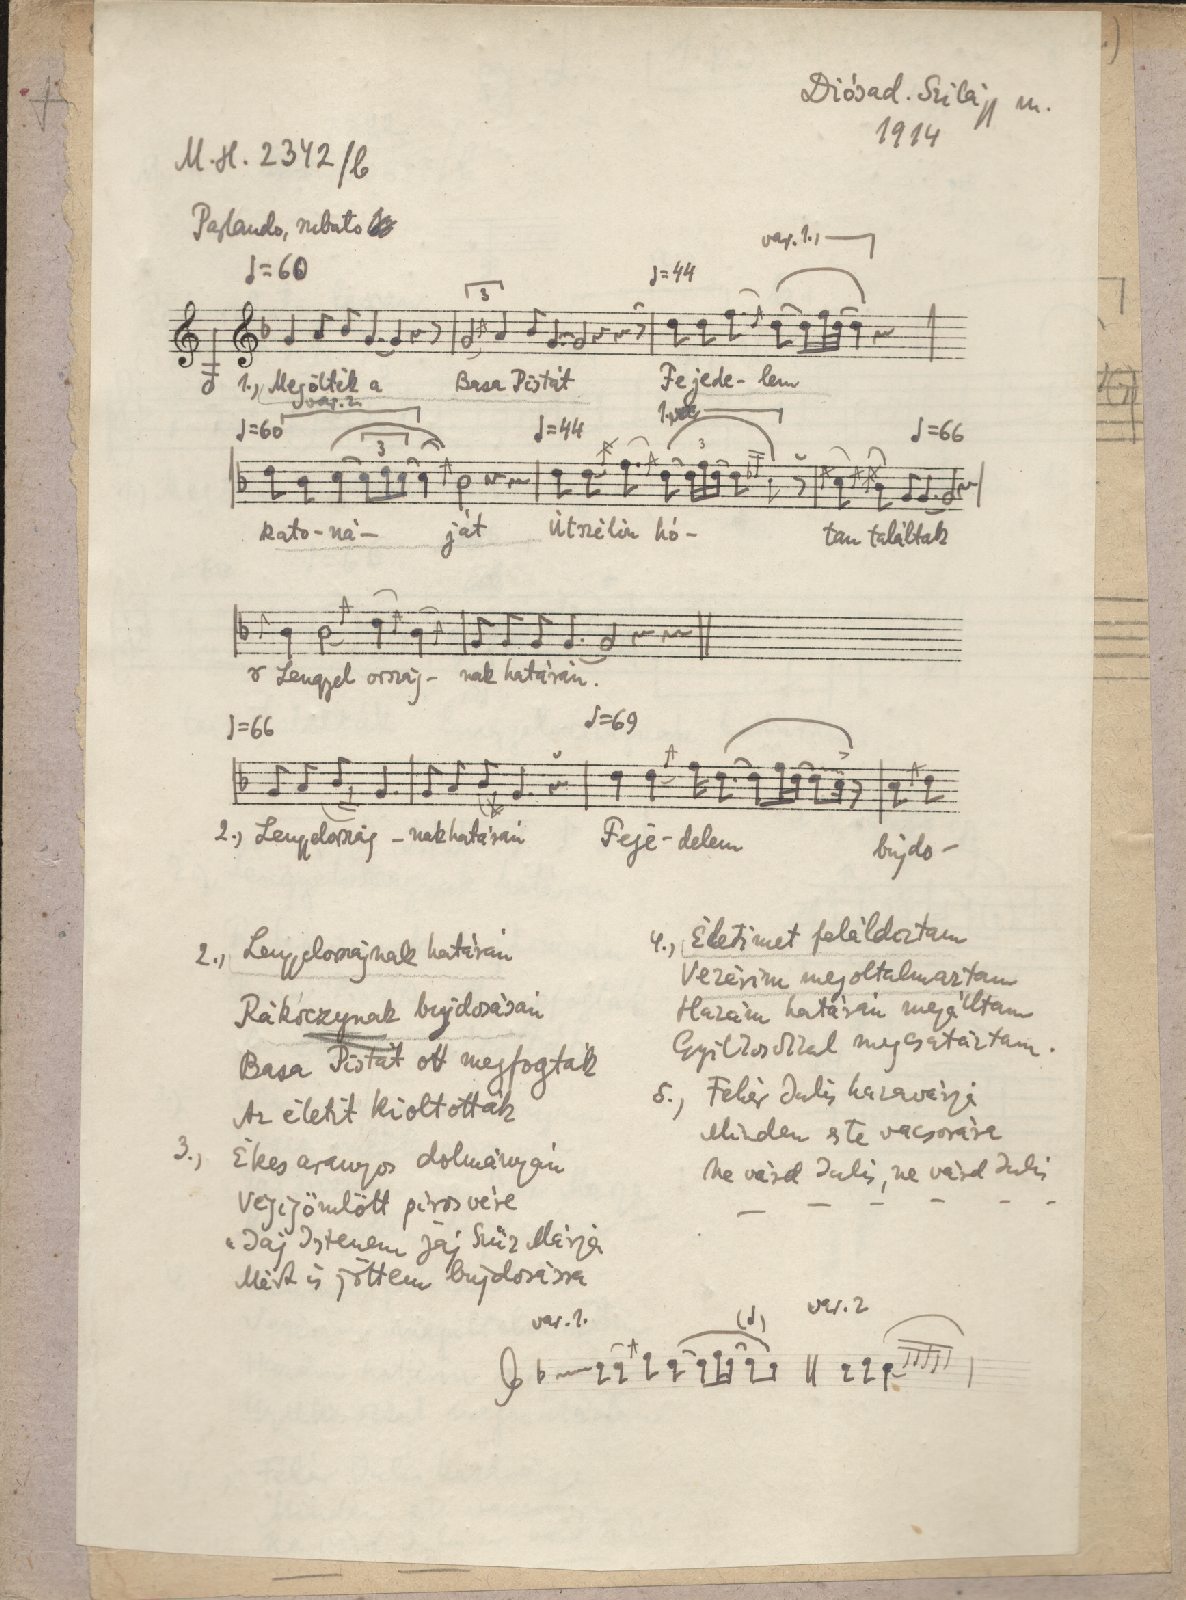 Diósad. Szilágy m.
1914
M.H. 2342/b
Parlando, rubato
♩=60
var. 1.,
♩=44
3
1., Megölték a Basa Pistát Fejede- lem
var. 2.
♩=60
♩=44
♩=66
3
3
kato-ná- ját Útszélin hó- tan találtak
Lengyel ország- nak határán.
♩=66
♩=69
2., Lengyelország - nak határán Fejé-delem bújdo-
2., Lengyelországnak határán
Rákóczynak bujdosásán
Basa Pistát ott megfogták
Az életit kioltották
3., Ékes aranyos dolmányán
Végigömlött piros vére
"Jaj Istenem jaj Szűz Márja
Mért is jöttem bujdosásra
4., Életimet feláldoztam
Vezérim megoltalmaztam
Hazám határán megálltam
Gyilkosokkal megcsatáztam.
5., Fehér Julis hazavárja
Minden este vacsorára
Ne várd Julis, ne várd Julis
– – – – – –
var. 1.
var. 2